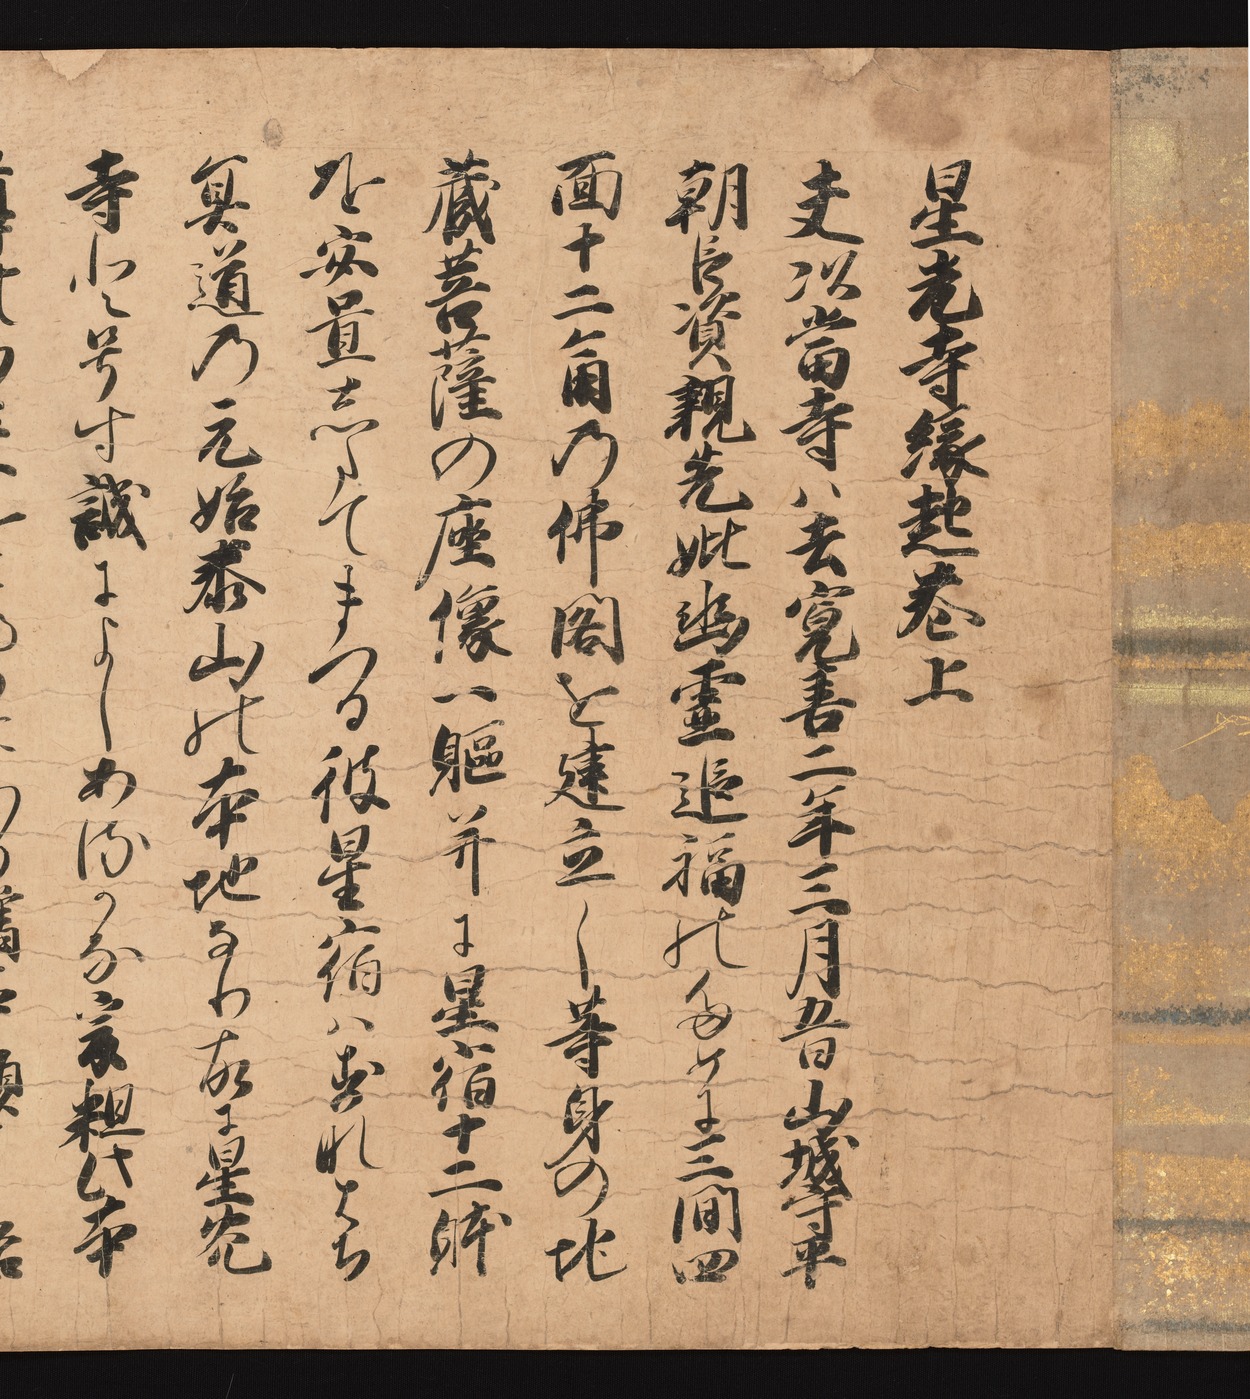 星光寺縁起巻上
夫以當寺ハ去寛喜二年三月五日山城守平
朝臣資親先妣幽霊追福のために三間四
面十二箇乃佛閣を建立し等身の地
蔵菩薩の座像一軀并に星宿十二躰
を安置したてまつる彼星宿ハすなはち
冥道乃元始泰山の本地なり故に星光
寺と号す誠によしあるかな家祖代本